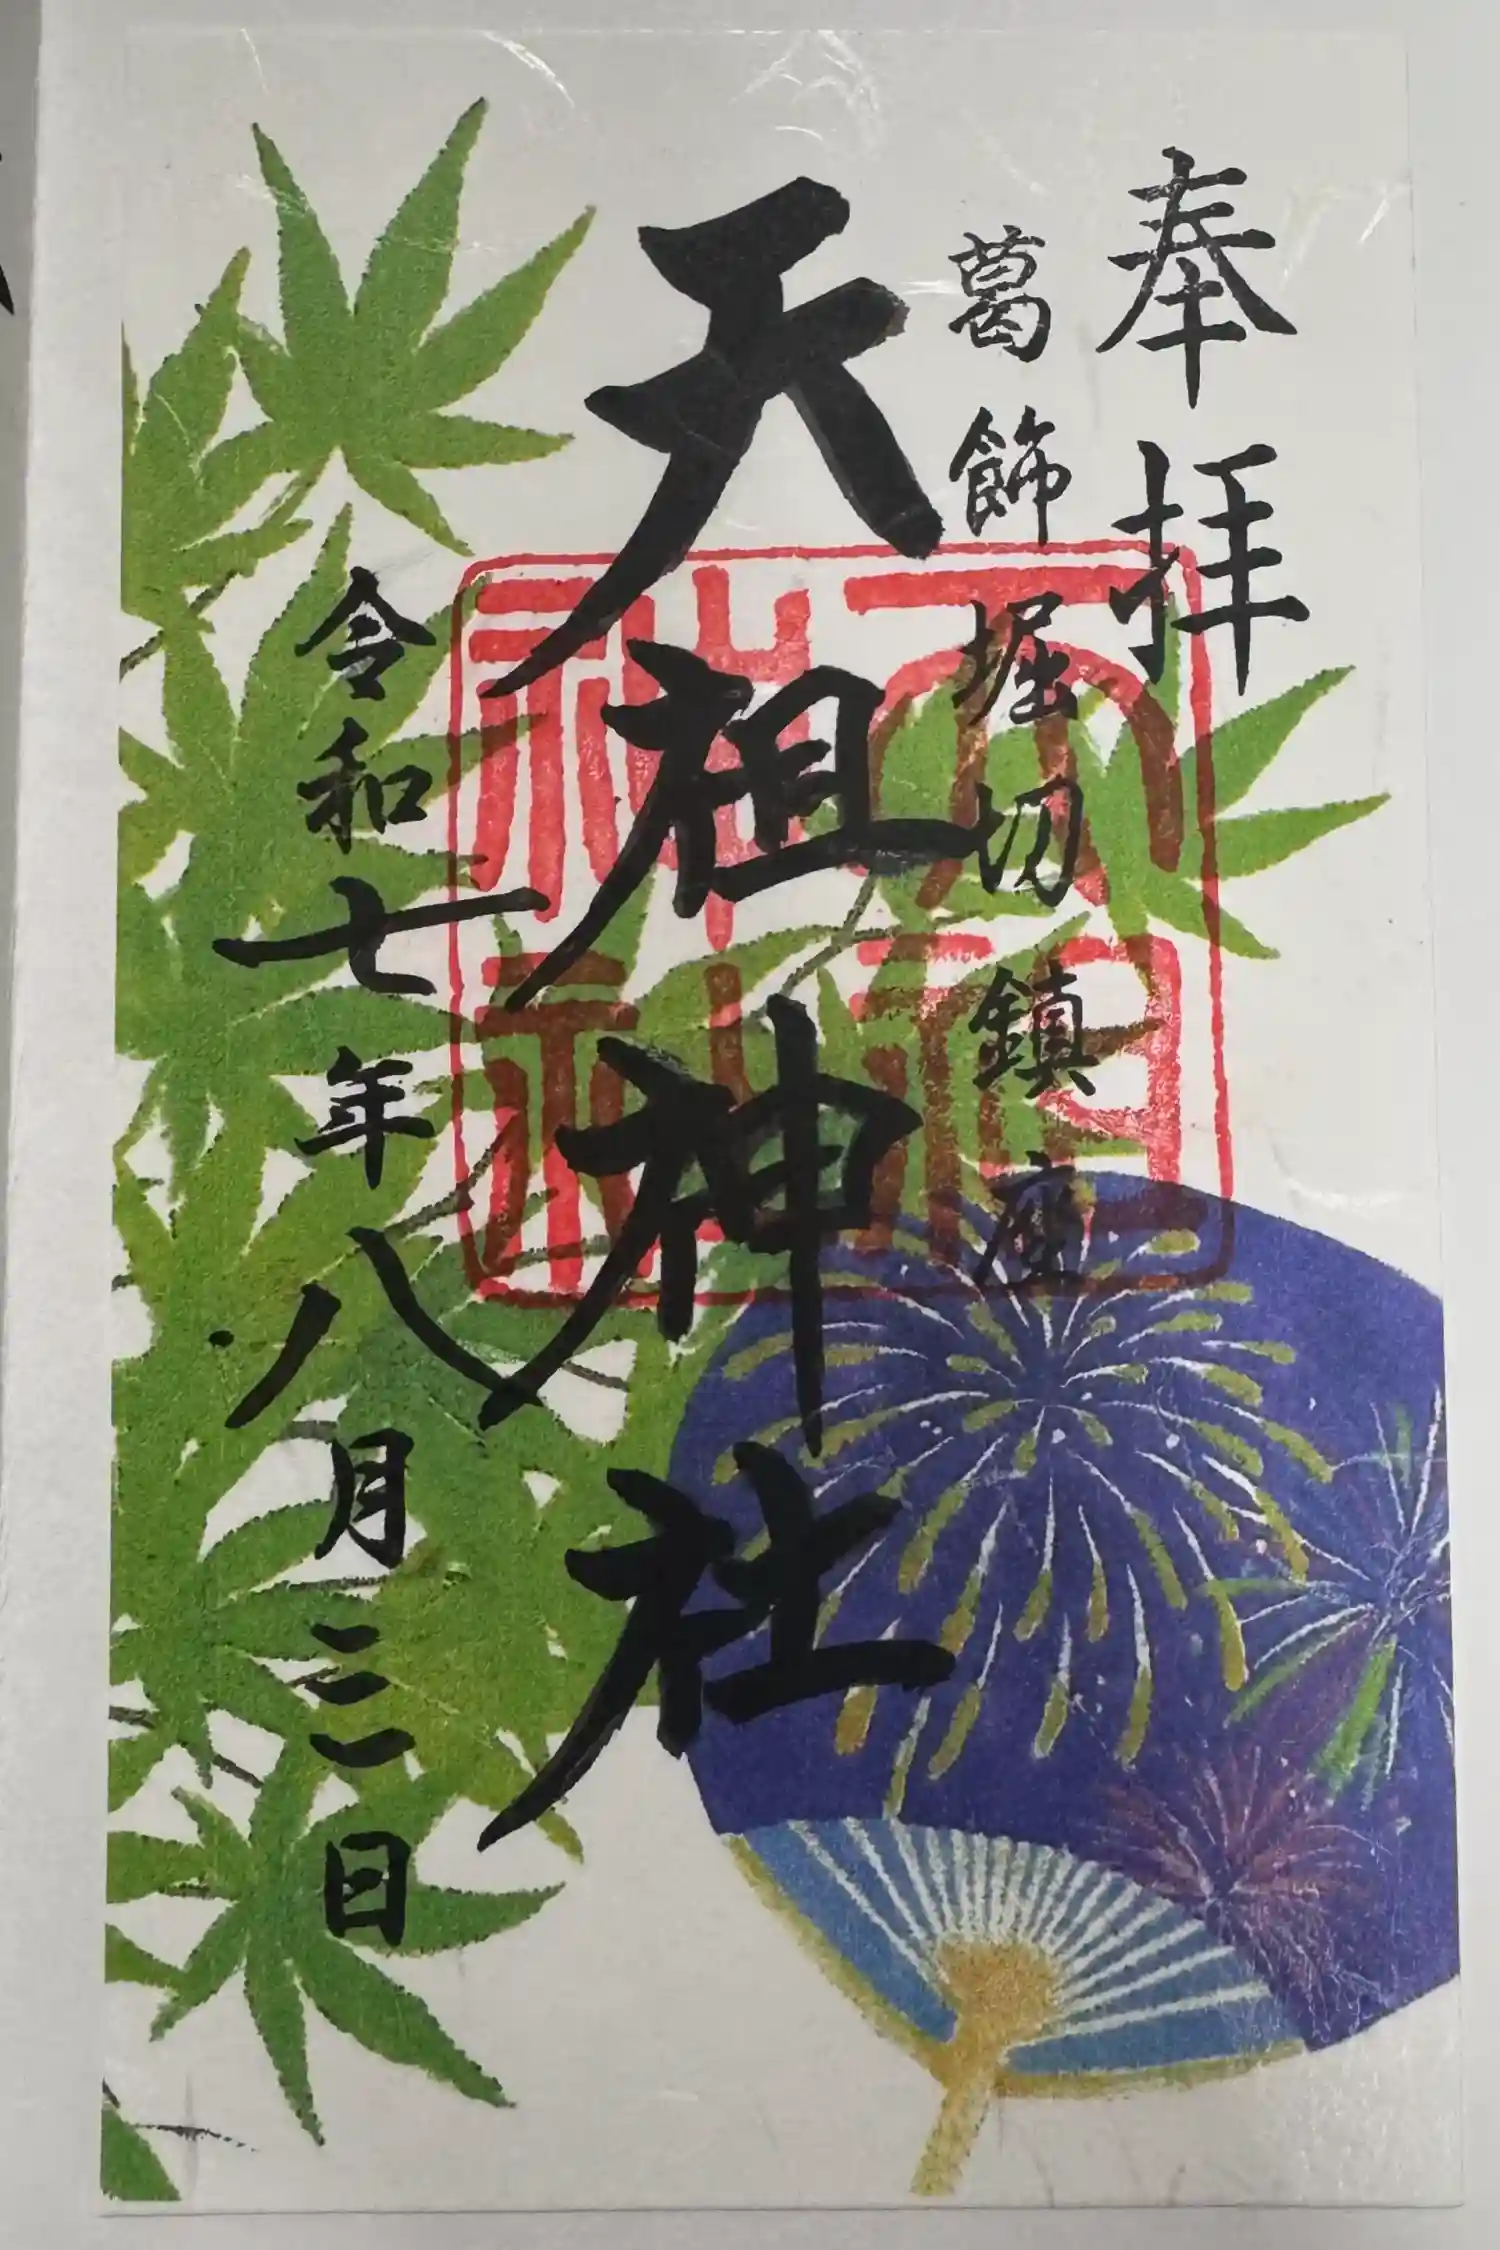 奉拝
葛飾堀切鎮座
天祖神社
天祖
神社
令和七年八月三日